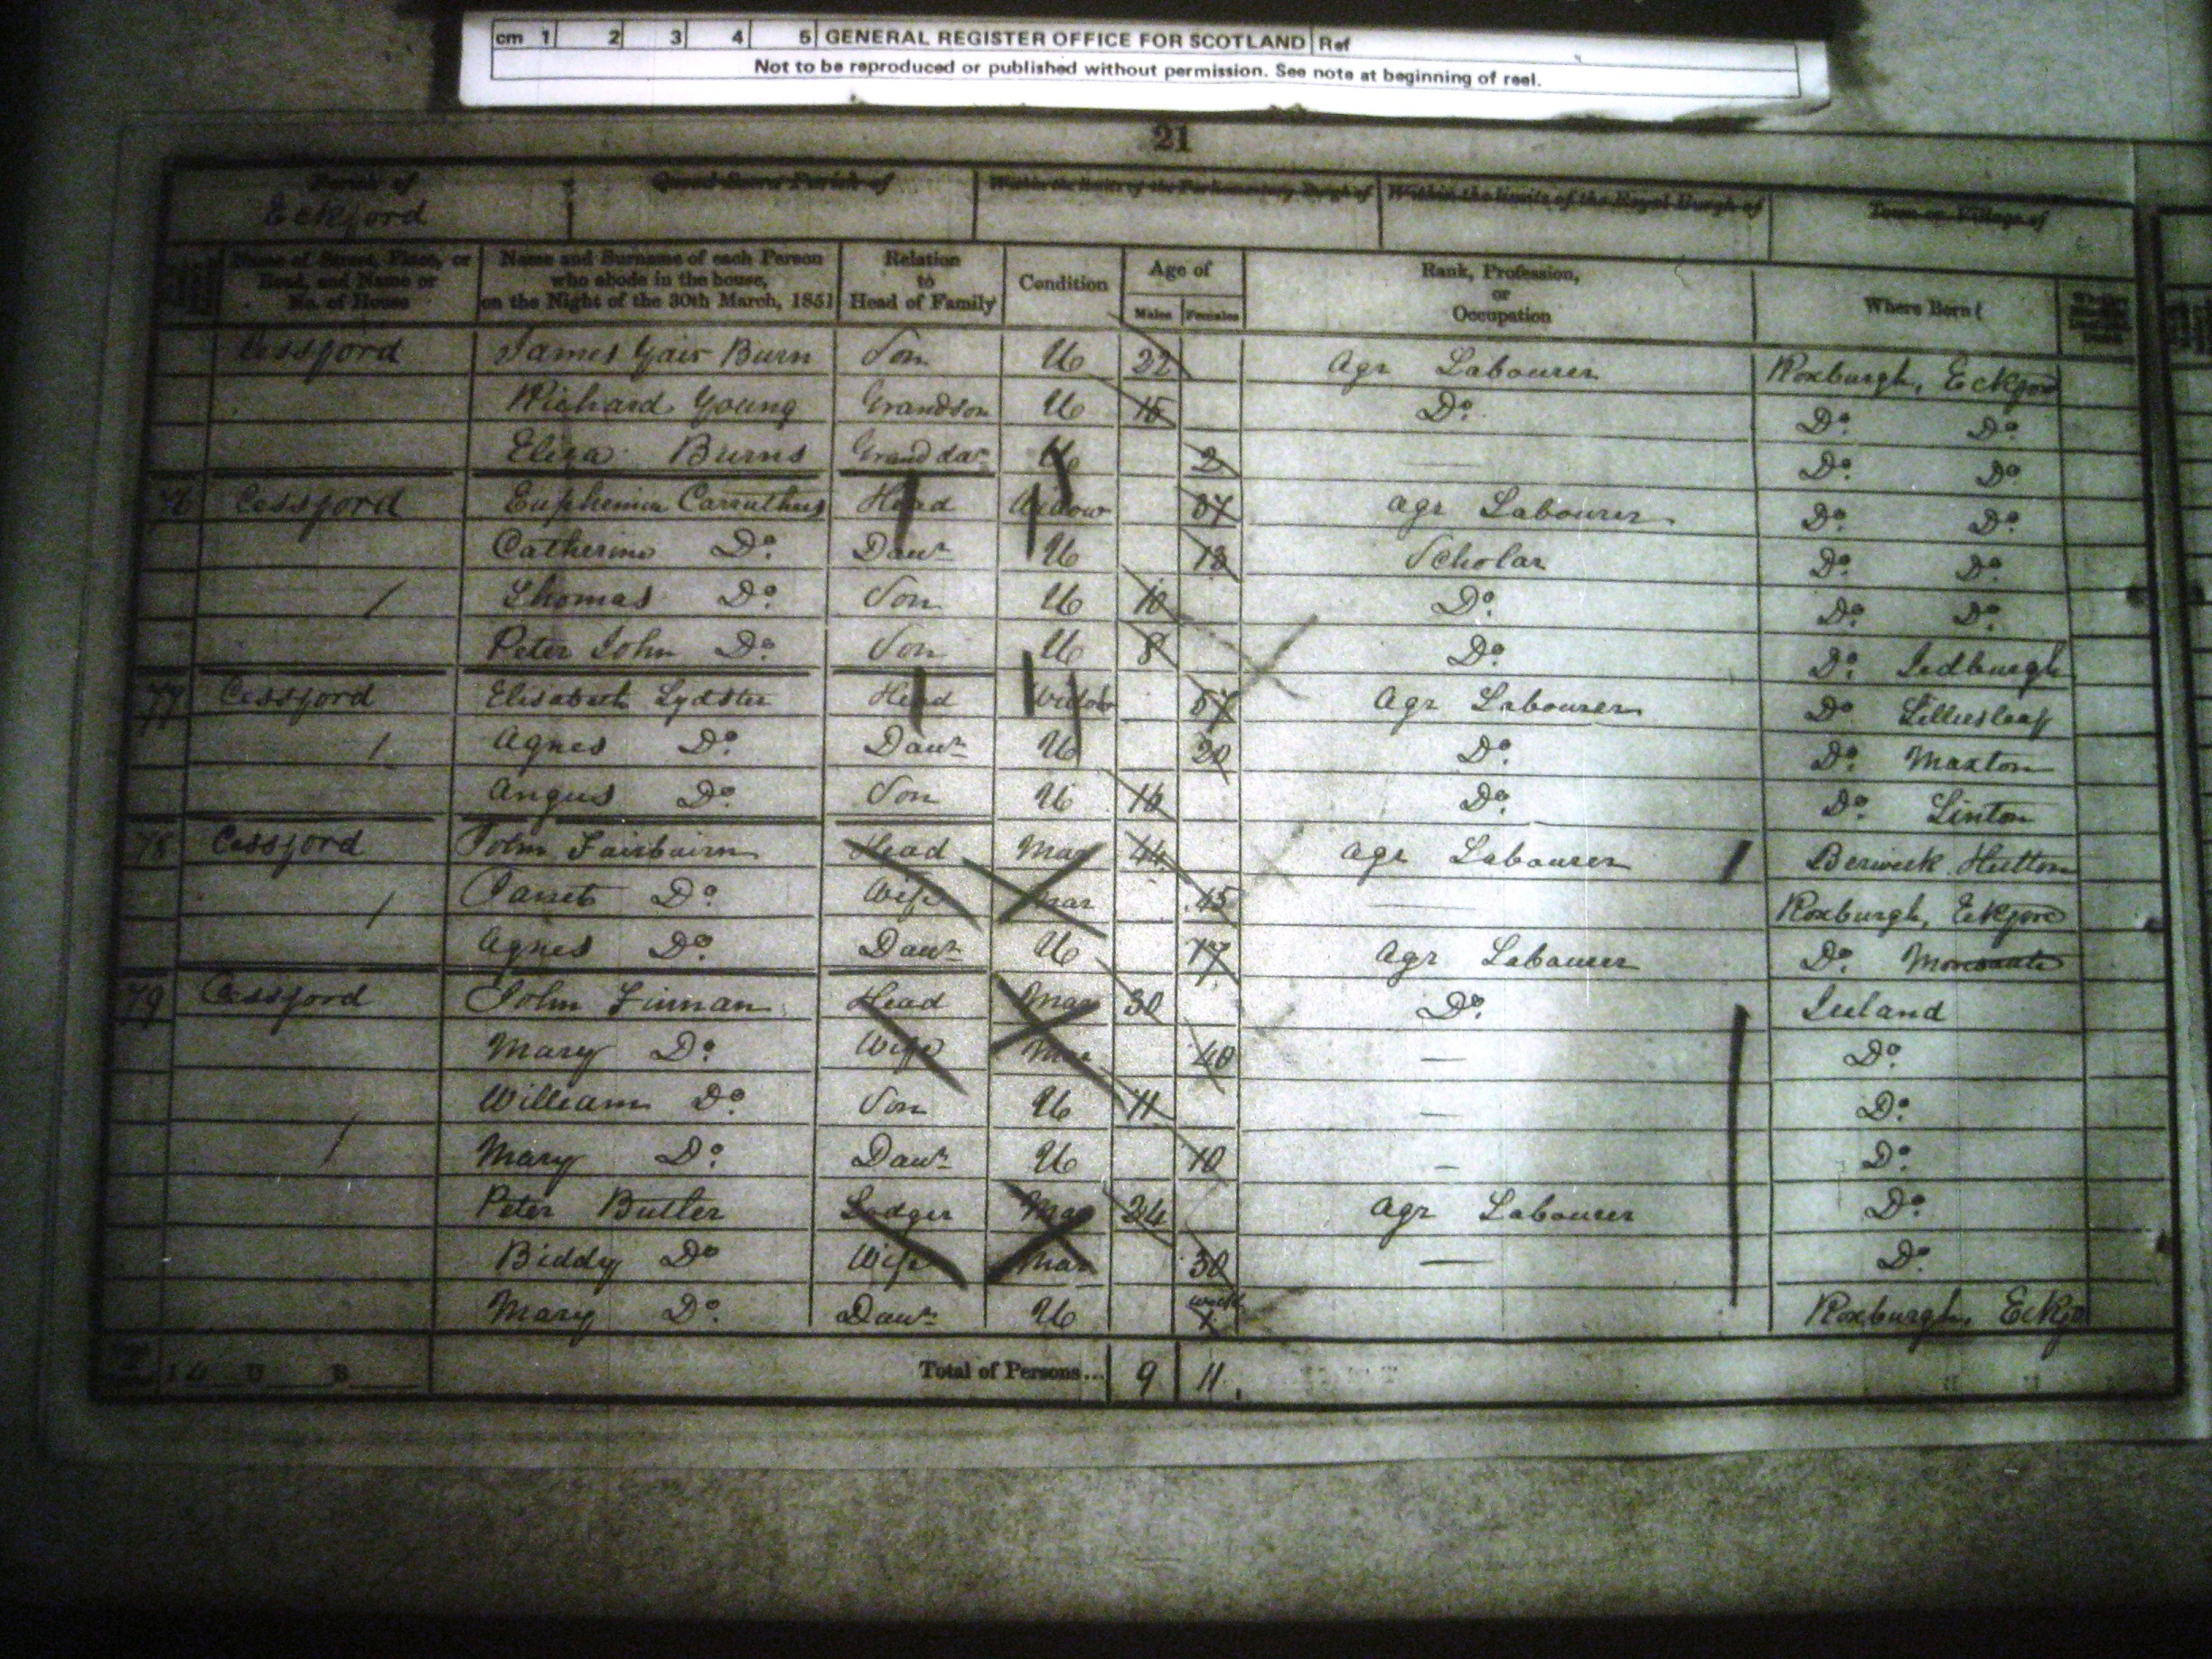 cm 1 2 3 4 5 GENERAL REGISTER OFFICE FOR SCOTLAND Ref
Not to be reproduced or published without permission. See note at beginning of reel.
21
Parish of Quoad Sacra Parish of Within the limits of the Parliamentary Burgh of Within the limits of the Royal Burgh of Town or Village of
Eckford
Name of Street, Place, or Road, and Name or No. of House Name and Surname of each Person who abode in the house, on the Night of the 30th March, 1851 Relation to Head of Family Condition Age of Males Females Rank, Profession, or Occupation Where Born
Cessford James Yair Burn Son U 22 Agr Labourer Roxburgh, Eckford
Richard Young Grandson U 15 Do. Do. Do.
Eliza Burns Grand daur U 2 — Do. Do
76 Cessford Euphemia Carruthers Head Widow 37 Agr Labourer Do. Do.
Catherine Do. Daur U 13 Scholar Do. Do.
Thomas Do. Son U 10 Do. Do. Do.
Peter John Do. Son U 8 Do. Do. Jedburgh
77 Cessford Elisabeth Lydster Head Widow 57 Agr Labourer Do. Lilliesleaf
Agnes Do. Daur U 20 Do. Do. Maxton
Angus Do. Son U 16 Do. Do. Linton
78 Cessford John Fairbairn Head Mar 44 Agr Labourer Berwick Hutton
Janet Do. Wife Mar 45 — Roxburgh, Eckford
Agnes Do. Daur U 17 Agr Labourer Do.
79 Cessford John Finnan Head Mar 30 Do. Ireland
Mary Do. Wife Mar 40 — Do.
William Do. Son U 11 — Do.
Mary Do. Daur U 10 — Do.
Peter Butler Lodger Mar 24 Agr Labourer Do.
Biddy Do Wife Mar 30 — Do.
Mary Do. Daur U week Roxburgh, Eckfo
Total of Persons... 9 11